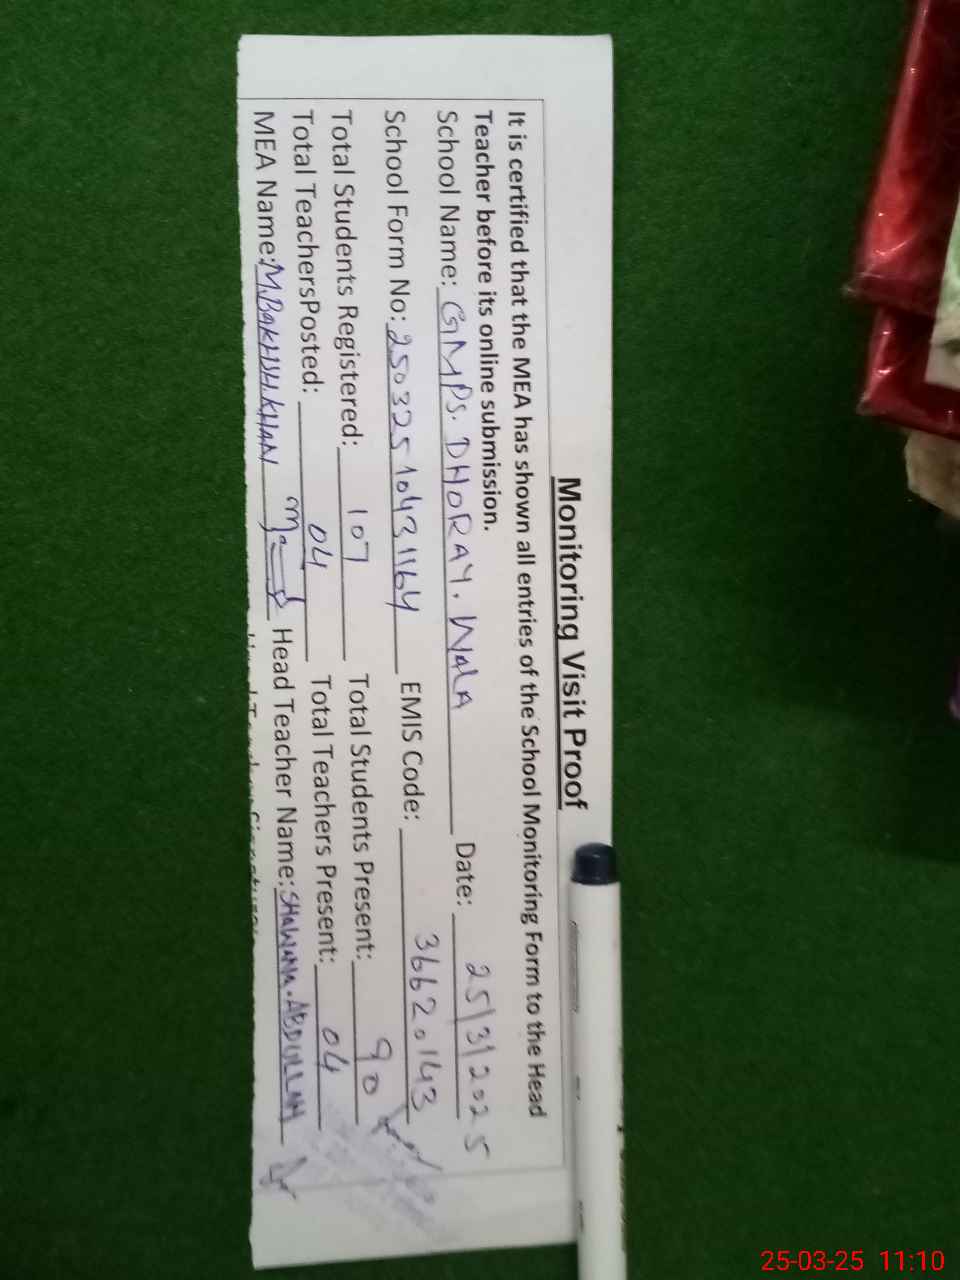 Monitoring Visit Proof
It is certified that the MEA has shown all entries of the School Monitoring Form to the Head
Teacher before its online submission.
School Name: GMPS. DHORAY. WALA Date: 25/3/2025
School Form No: 250325 10431164 EMIS Code: 36620143
Total Students Registered: 107 Total Students Present: 90
Total TeachersPosted: 04 Total Teachers Present: 04
MEA Name: M.BAKHSH.KHAN Head Teacher Name: SHAWANA.ABDULLAH
25-03-25 11:10